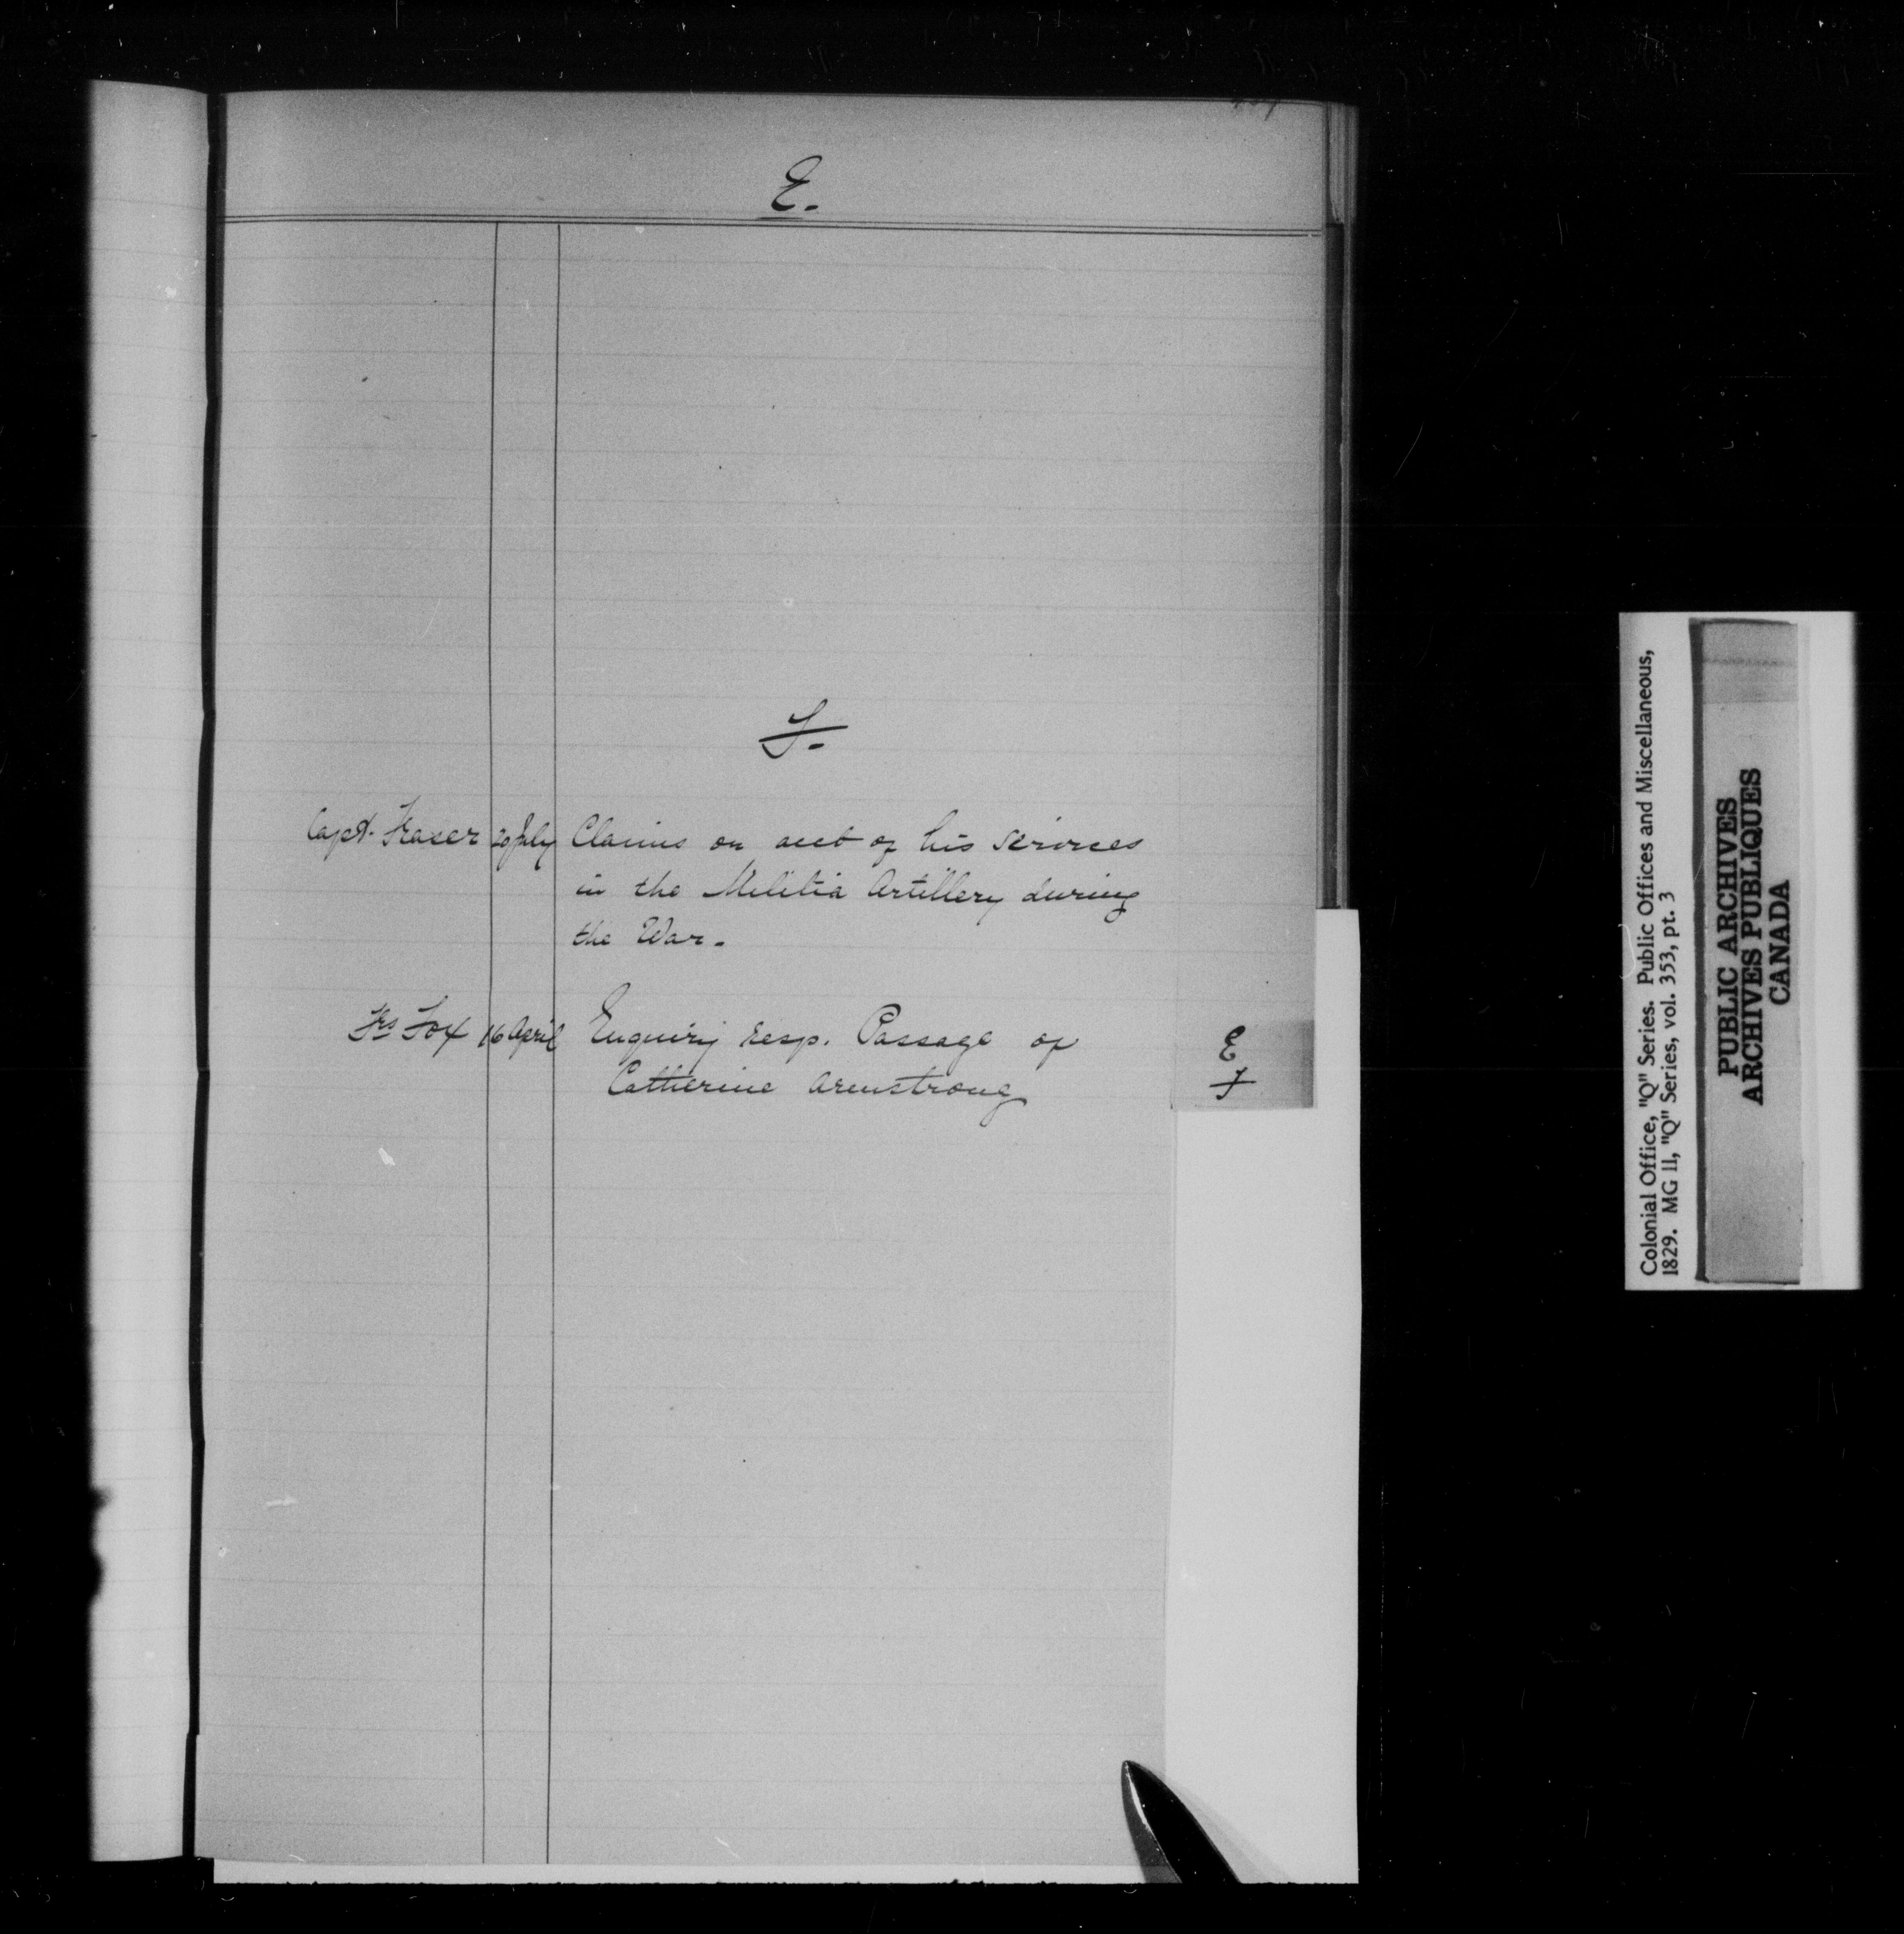 E.
F.
Capt. Fraser 20 July Claims on acct of his services
in the Militia Artillery during
the War.
Frs Fox 16 April Enquiry resp. Passage of
Catherine Armstrong
E
F
Colonial Office, "Q" Series. Public Offices and Miscellaneous,
1829. MG 11, "Q" Series, vol. 353, pt. 3
PUBLIC ARCHIVES
ARCHIVES PUBLIQUES
CANADA